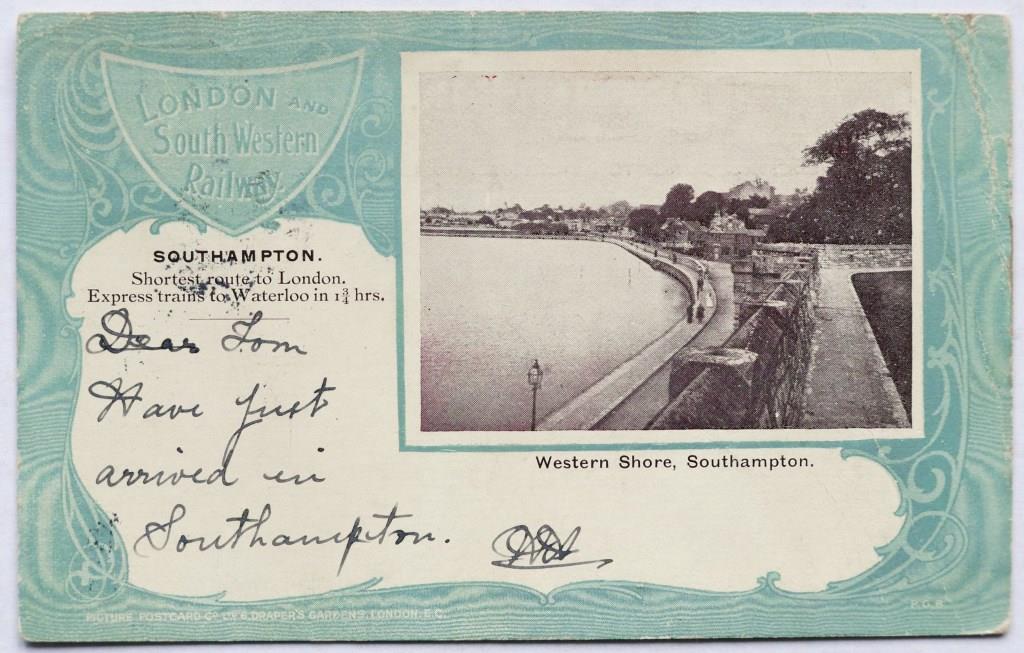 LONDON AND
South Western
Railway.
SOUTHAMPTON.
Shortest route to London.
Express trains to Waterloo in 1¾ hrs.
Dear Tom
Have just
arrived in
Southampton.
Western Shore, Southampton.
PICTURE POSTCARD Co Ld 6, DRAPER'S GARDENS, LONDON, E.C.